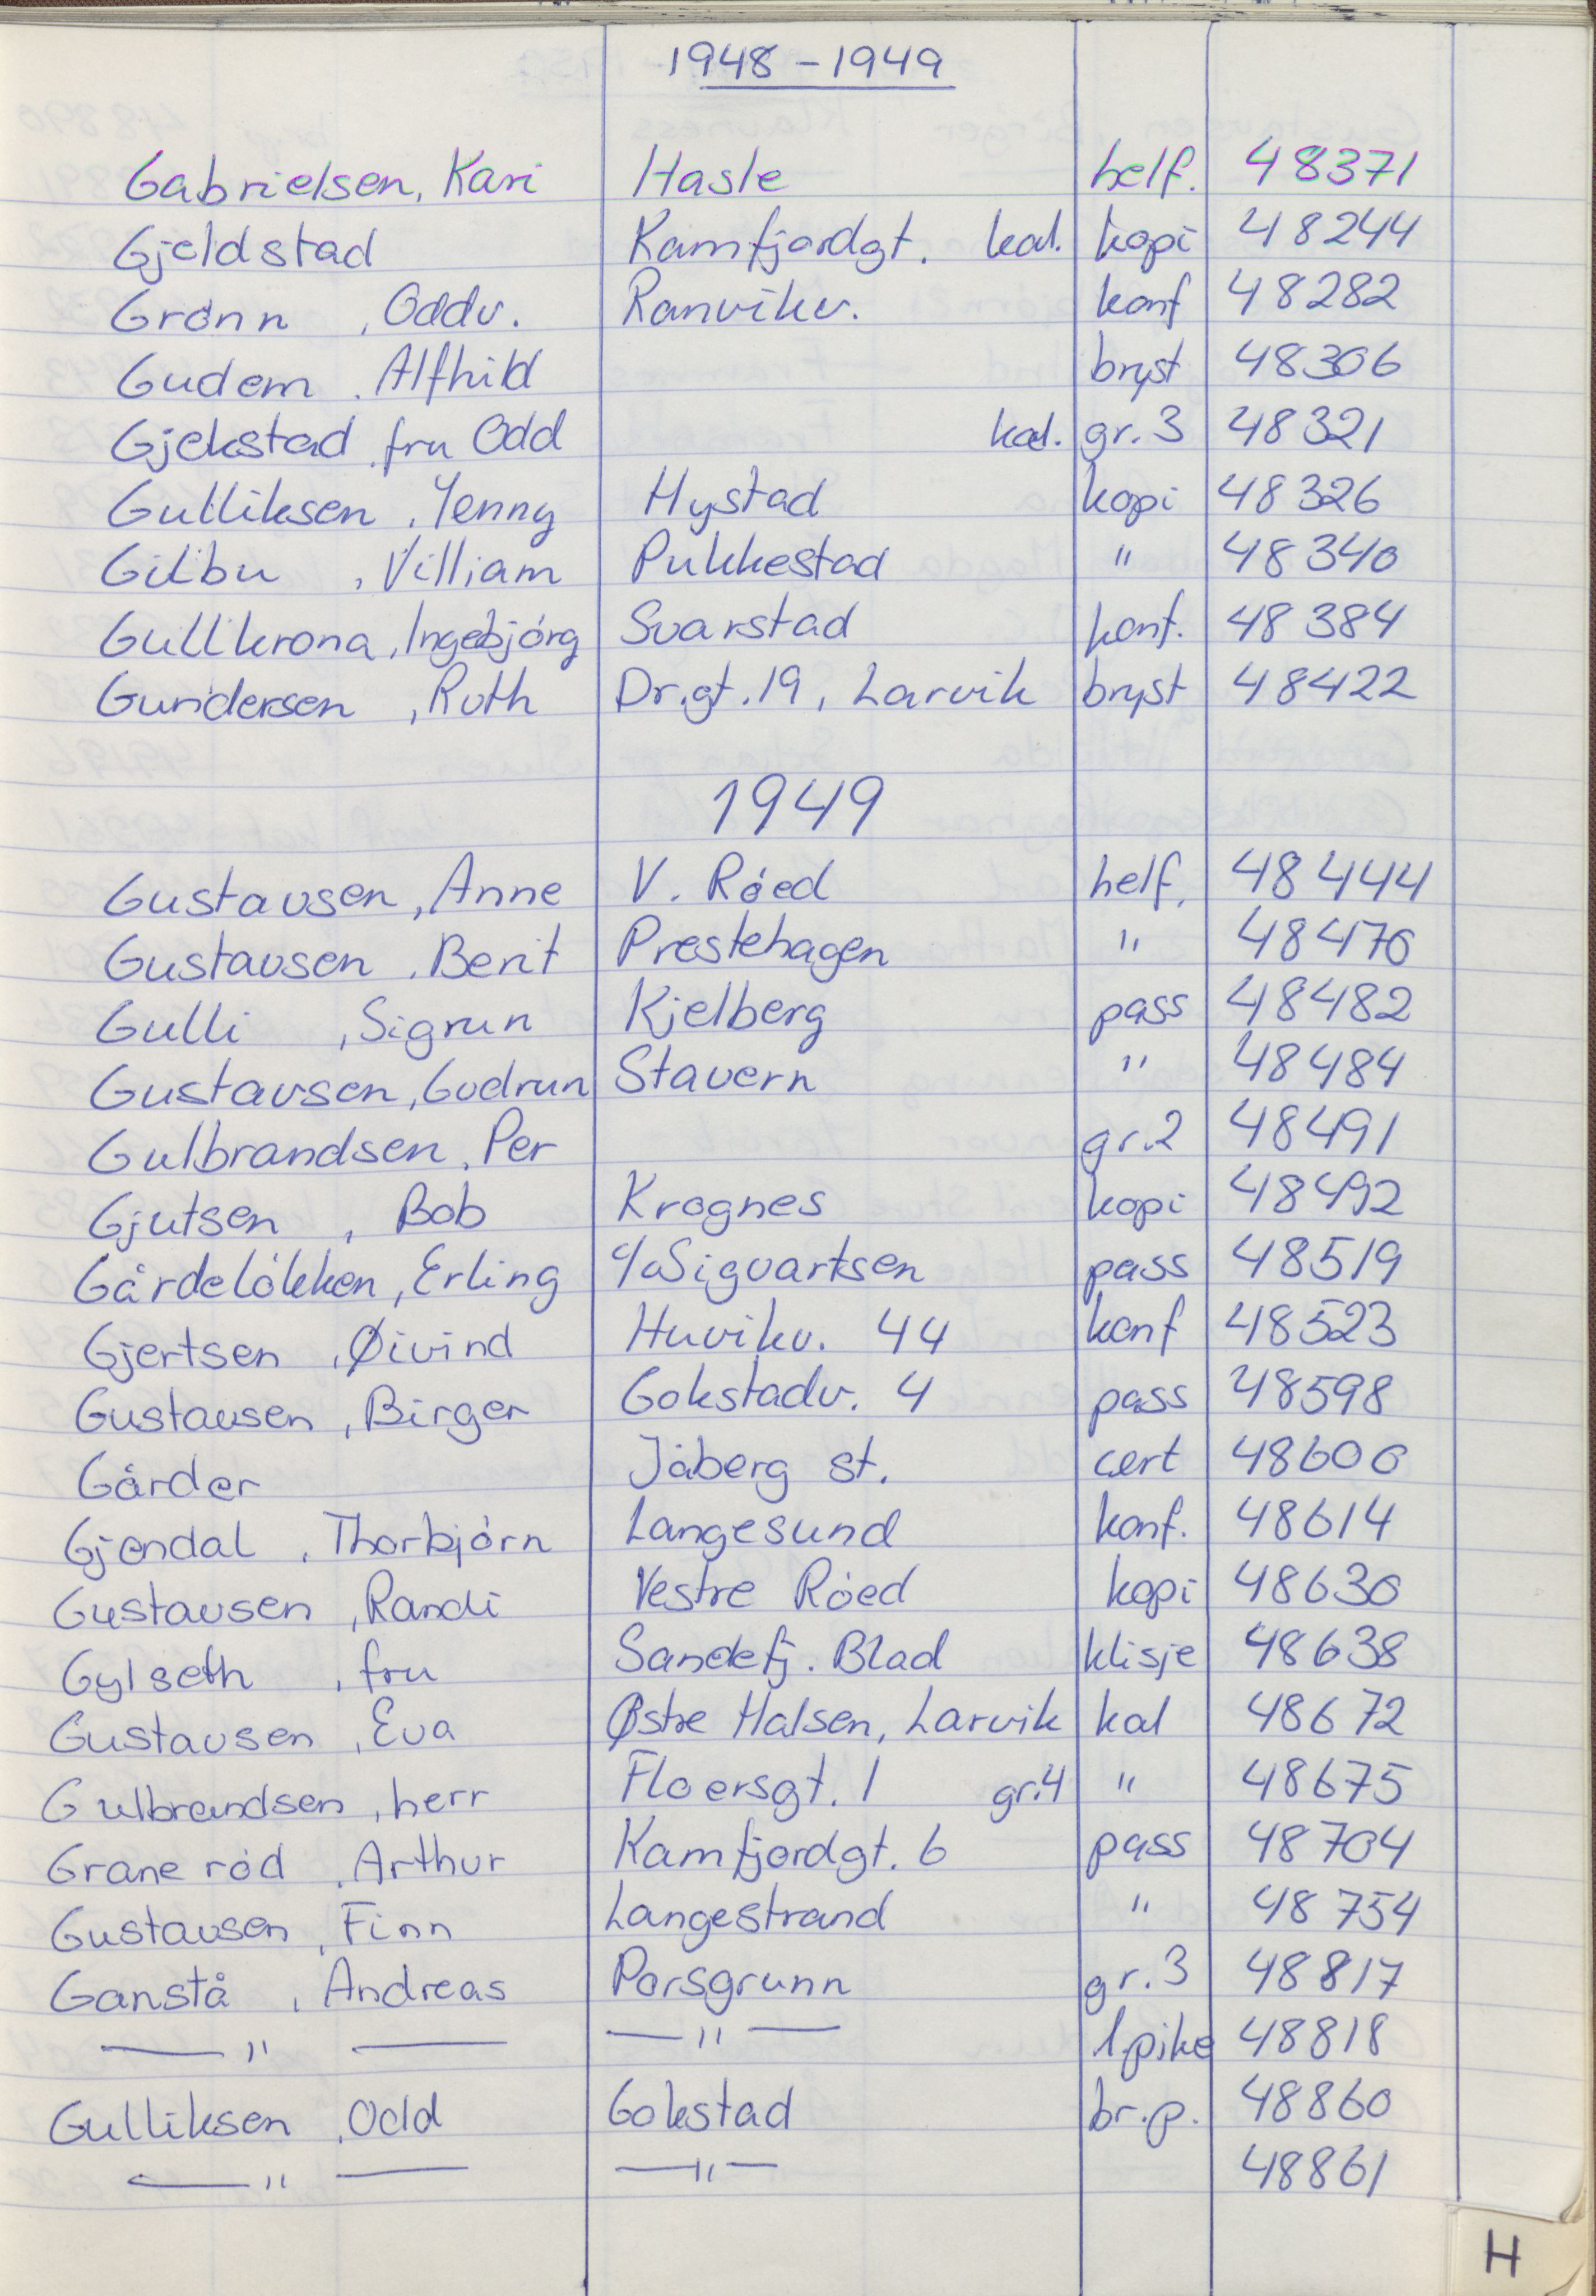 1948 - 1949
Gabrielsen, Kari Hasle helf. 48371
Gjeldstad Kamfjordgt. kal. kopi 48244
Grönn , Oddv. Ranvikv. konf 48282
Gudem . Alfhild bryst 48306
Gjekstad . fru Odd kal. gr.3 48321
Gulliksen . Yenny Hystad kopi 48326
Gilbu , Villiam Pukkestad " 48340
Gullkrona , Ingebjórg Svarstad konf. 48384
Gundersen , Ruth Dr.gt. 19 , Larvik bryst 48422
1949
Gustavsen , Anne V. Róed helf. 48444
Gustavsen . Berit Prestehagen " 48470
Gulli , Sigrun Kjelberg pass 48482
Gustavsen , Gudrun Stavern " 48484
Gulbrandsen . Per gr.2 48491
Gjutsen , Bob Krognes kopi 48492
Gårdelókken , Erling c/o Sigvartsen pass 48519
Gjertsen . Øivind Huvikv. 44 konf 48523
Gustavsen , Birger Gokstadv. 4 pass 48598
Gårder Jåberg st. cert 48600
Gjendal . Thorbjórn Langesund konf. 48614
Gustavsen , Randi Vestre Róed kopi 48630
Gylseth , fru Sandefj. Blad klisje 48638
Gustavsen , Eva Østre Halsen, Larvik kal 48672
Gulbrandsen , herr Floersgt. 1 gr.4 " 48675
Graneród . Arthur Kamfjordgt. 6 pass 48704
Gustavsen , Finn Langestrand " 48754
Ganstå , Andreas Porsgrunn gr.3 48817
— " — — " — 1 pike 48818
Gulliksen . Odd Gokstad br.p. 48860
— " — — " — 48861
H